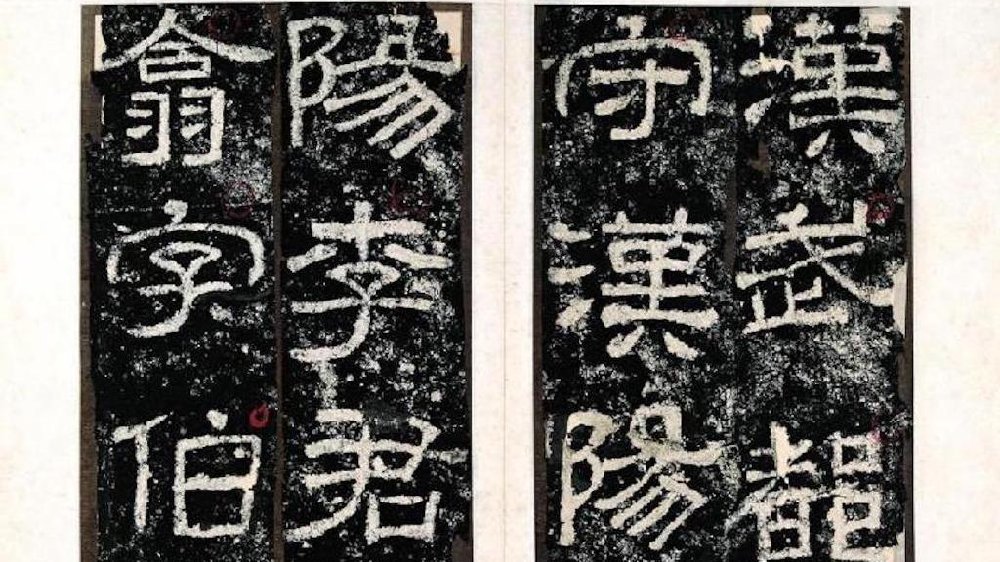 漢武都
守漢陽
陽李君
翕字伯